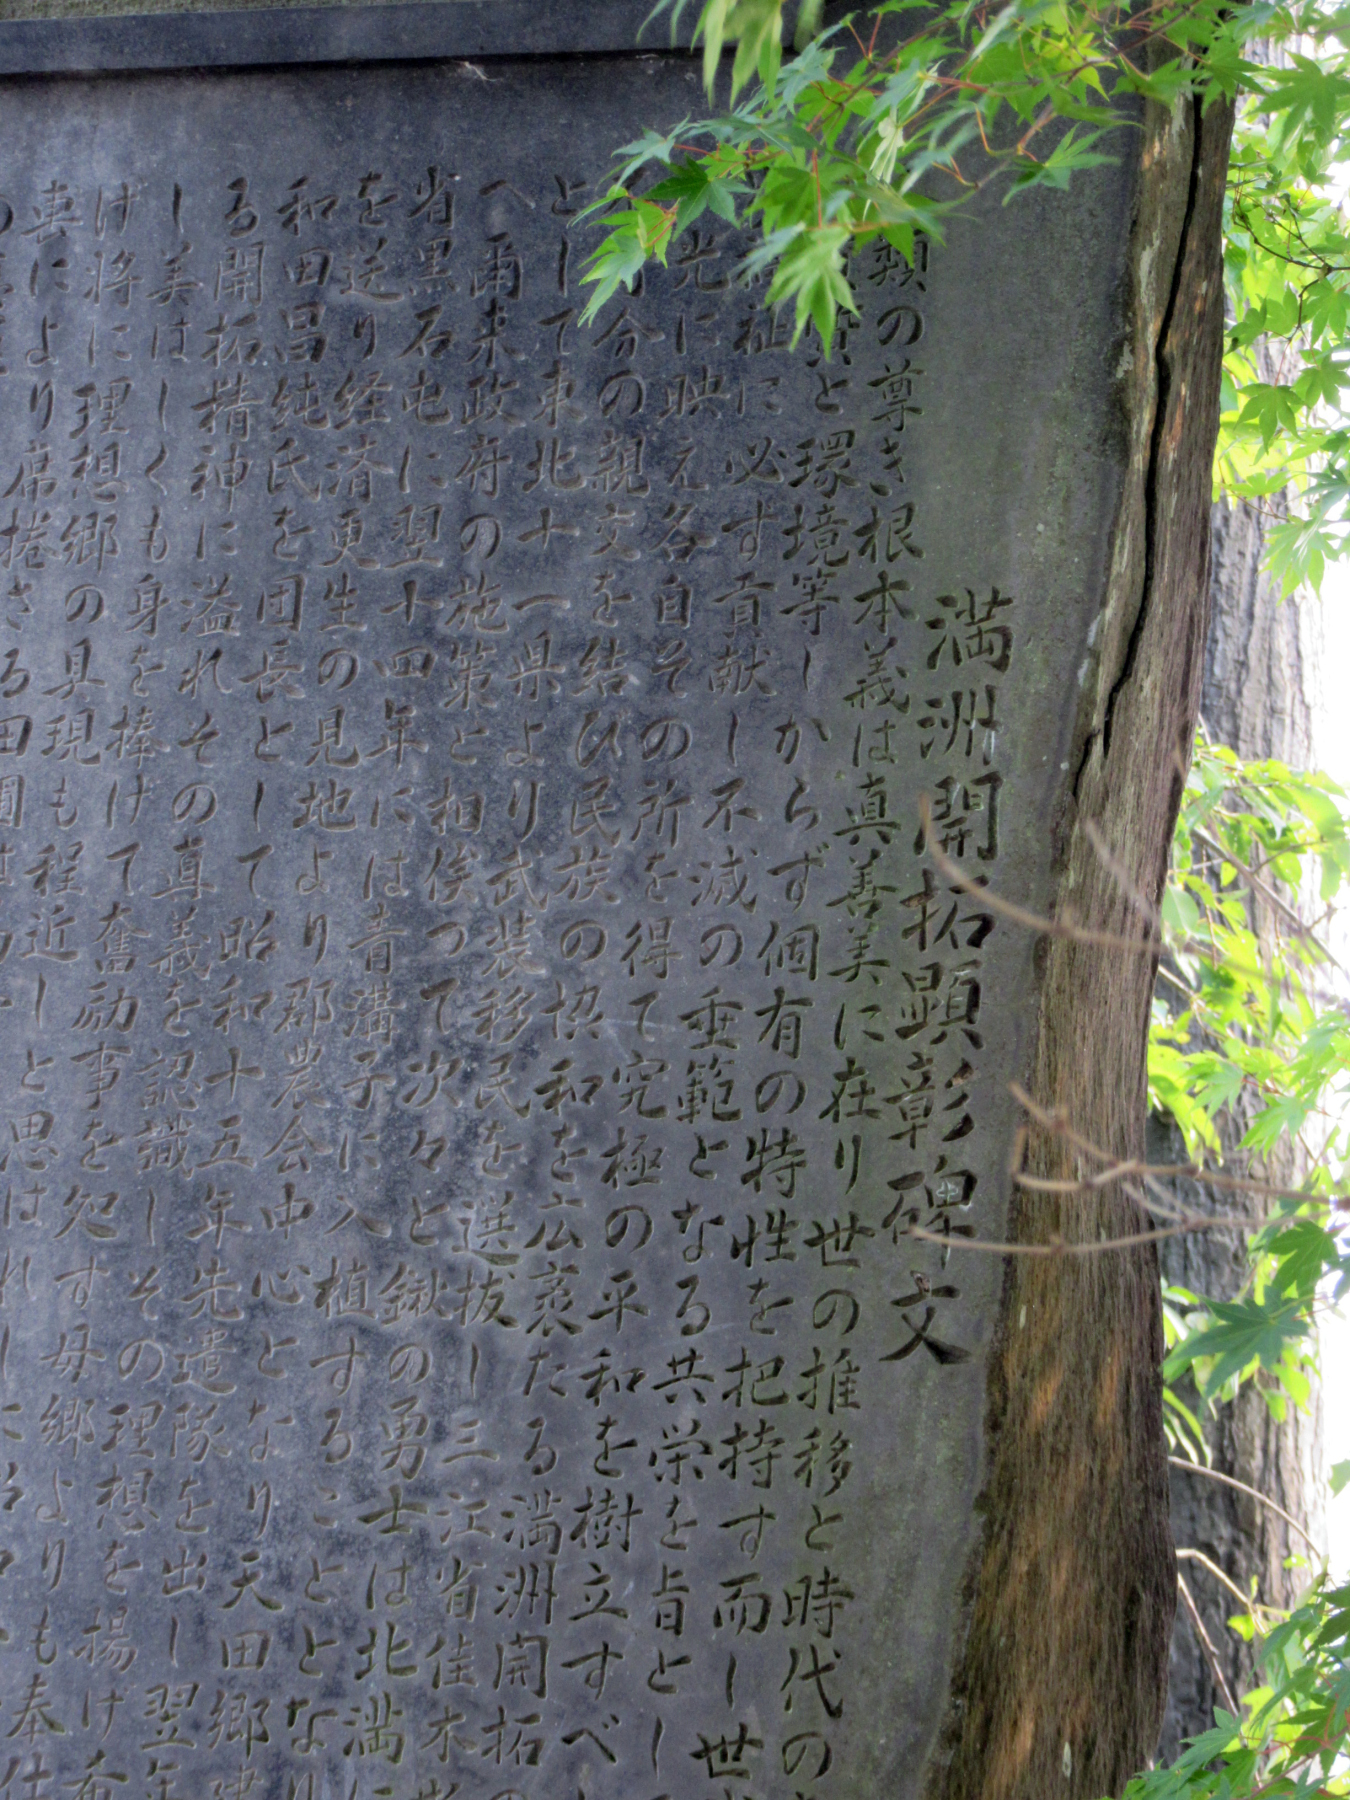 満洲開拓顕彰碑文
類の尊き根本義は真善美に在り世の推移と時代の
と環境等しからず個有の特性を把持す而し世
祉に必す貢献し不滅の垂範となる共栄を旨とし
光に映え各自その所を得て究極の平和を樹立すべ
分の親交を結び民族の協和を広衮たる満洲開拓の
として東北十一県より武装移民を選抜し三江省佳木
へ爾来政府の施策と相俟つて次々と鍬の勇士は北満に
省黒石屯に翌十四年には青溝子に入植することとなり
を送り経済更生の見地より郡農会中心となり天田郷建
和田昌純氏を団長として昭和十五年先遣隊を出し翌年
る開拓精神に溢れその真義を認識しその理想を揚げ希
し美はしくも身を捧げて奮励事を処す母郷よりも奉仕
け将に理想郷の具現も程近しと思はれしに
によより席捲さる田園は